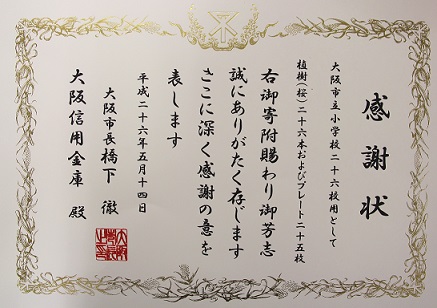 感謝状
大阪市立小学校二十六校用として
植樹(桜)二十六本およびプレート二十五枚
右御寄附賜わり御芳志
誠にありがたく存じます
ここに深く感謝の意を
表します
平成二十六年五月十四日
大阪市長 橋下 徹
大阪信用金庫 殿